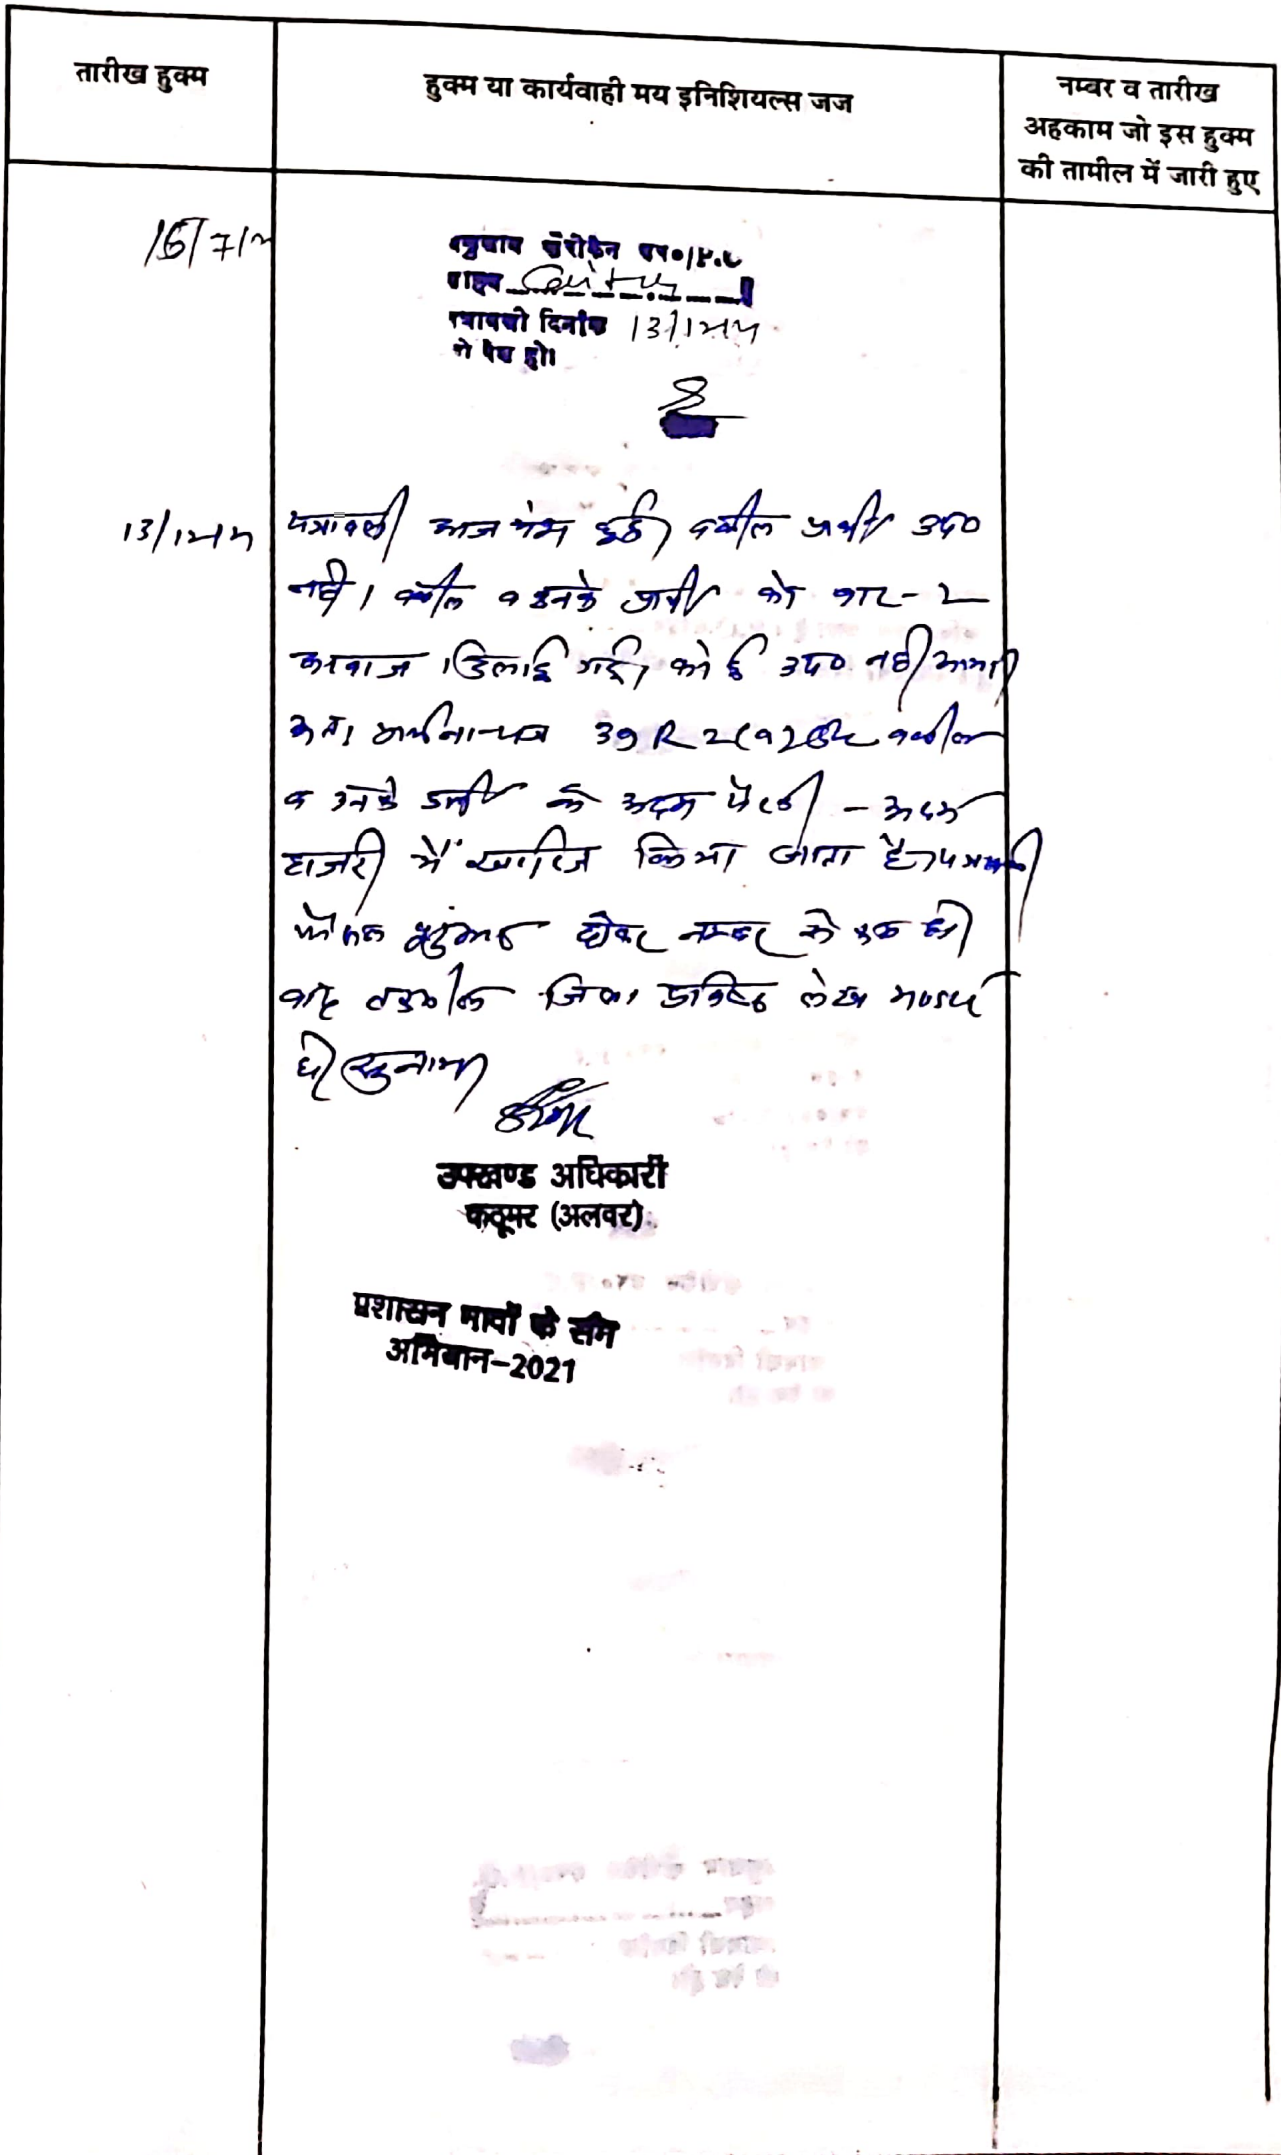 तारीख हुक्म
हुक्म या कार्यवाही मय इनिशियल्स जज
नम्बर व तारीख
अहकाम जो इस हुक्म
की तामील में जारी हुए
दिनांक
को पेश हो।
पत्रावली आज पेश हुई। वकील प्रार्थी उप०
नही। वकील व उनके प्रार्थी को बार-२
आवाज दिलाई गई। कोई उप० नही आया
अतः प्रार्थना-पत्र वकील
व उनके प्रार्थी के अदम पैरवी - अदम
हाजरी में खारिज किया जाता है। पत्रावली
फैसल शुमार होकर नम्बर से कम हो
बाद तकमील लेख भण्डार
हो। सुनाया
उपखण्ड अधिकारी
कठूमर (अलवर)
प्रशासन गावों के संग
अभियान-2021